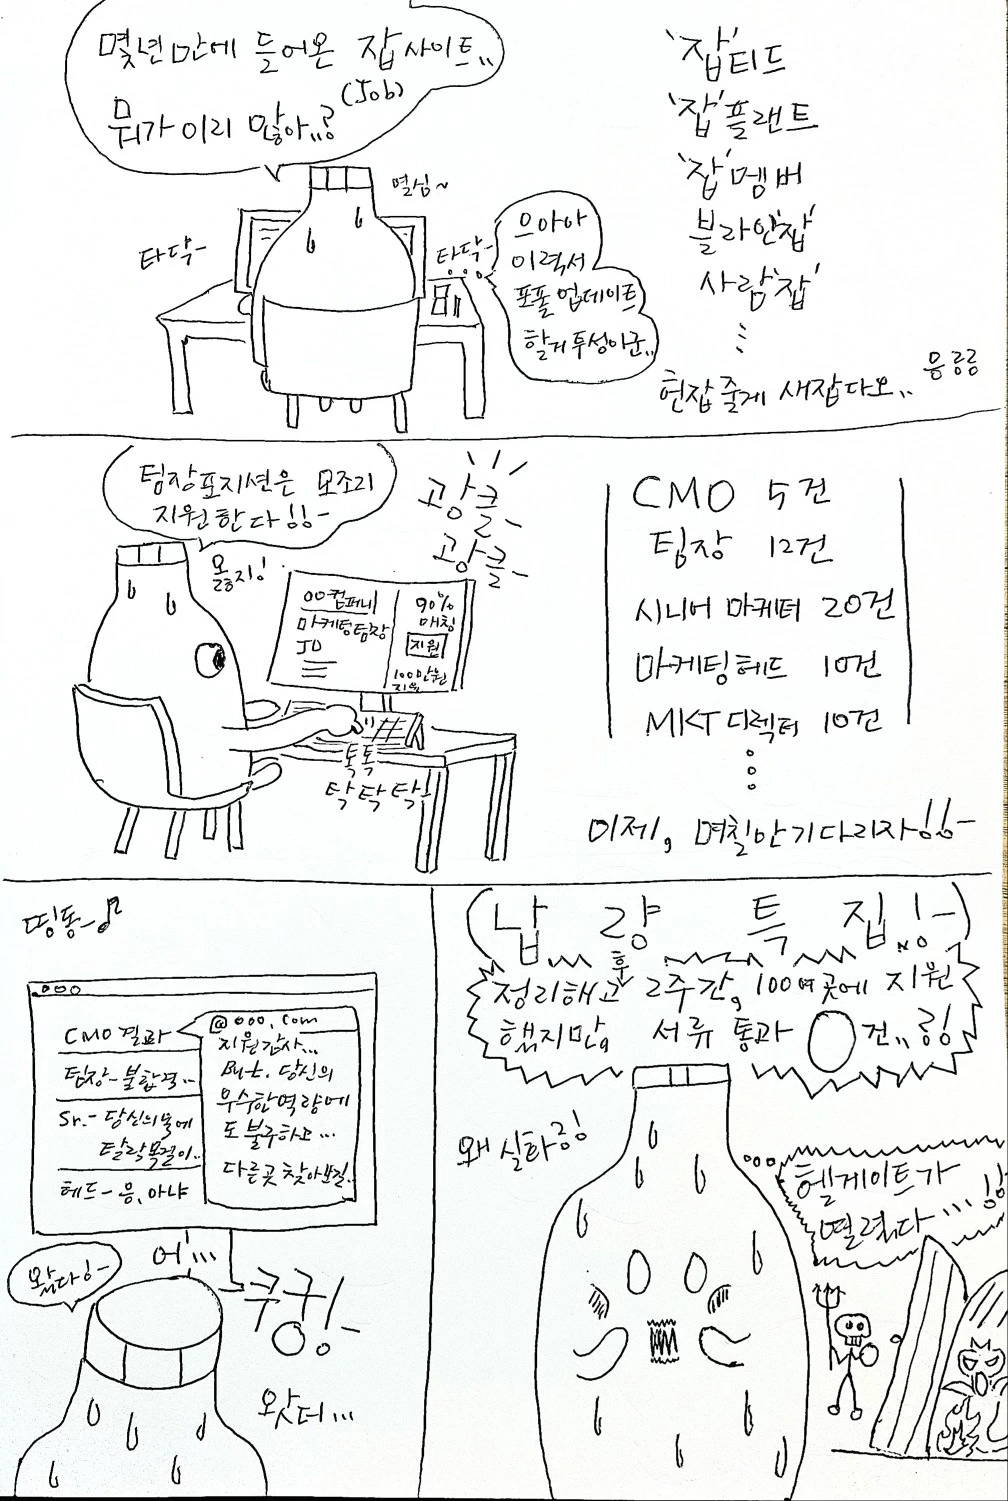 몇년만에 들어온 잡사이트..
(Job)
뭐가 이리 많아..?
'잡'티드
'잡'플랜트
'잡'멤버
블라인'잡'
사람'잡'
현잡 줄게 새잡다오..
음 ㄹㄹ
열심~
타닥-
타닥-
으아아
이력서
포폴 업데이트
할거 투성이군..
팀장포지션은 모조리
지원한다!!-
광클-
광클-
옳지!
OO컴퍼니
마케팅팀장
JD
90%
매칭
지원
100만원
지급
톡톡
탁탁탁!
CMO 5건
팀장 12건
시니어 마케터 20건
마케팅헤드 10건
MKT 디렉터 10건
이제, 며칠만 기다리자!!-
띵동-♪
CMO 결과
팀장-불합격..
Sr.- 당신의 눈에
탈락목걸이..
헤드-응, 아냐
@ooo.com
지원감사...
But. 당신의
우수한 역량에
도 불구하고...
다른곳 찾아보길..
왔다!-
어'...
쿠구!-
왓더...
(납량특집!-)
정리해고 후 2주간, 100여곳에 지원
했지만, 서류 통과 0건..!!
왜 실화!!
헬게이트가
열렸다...!!